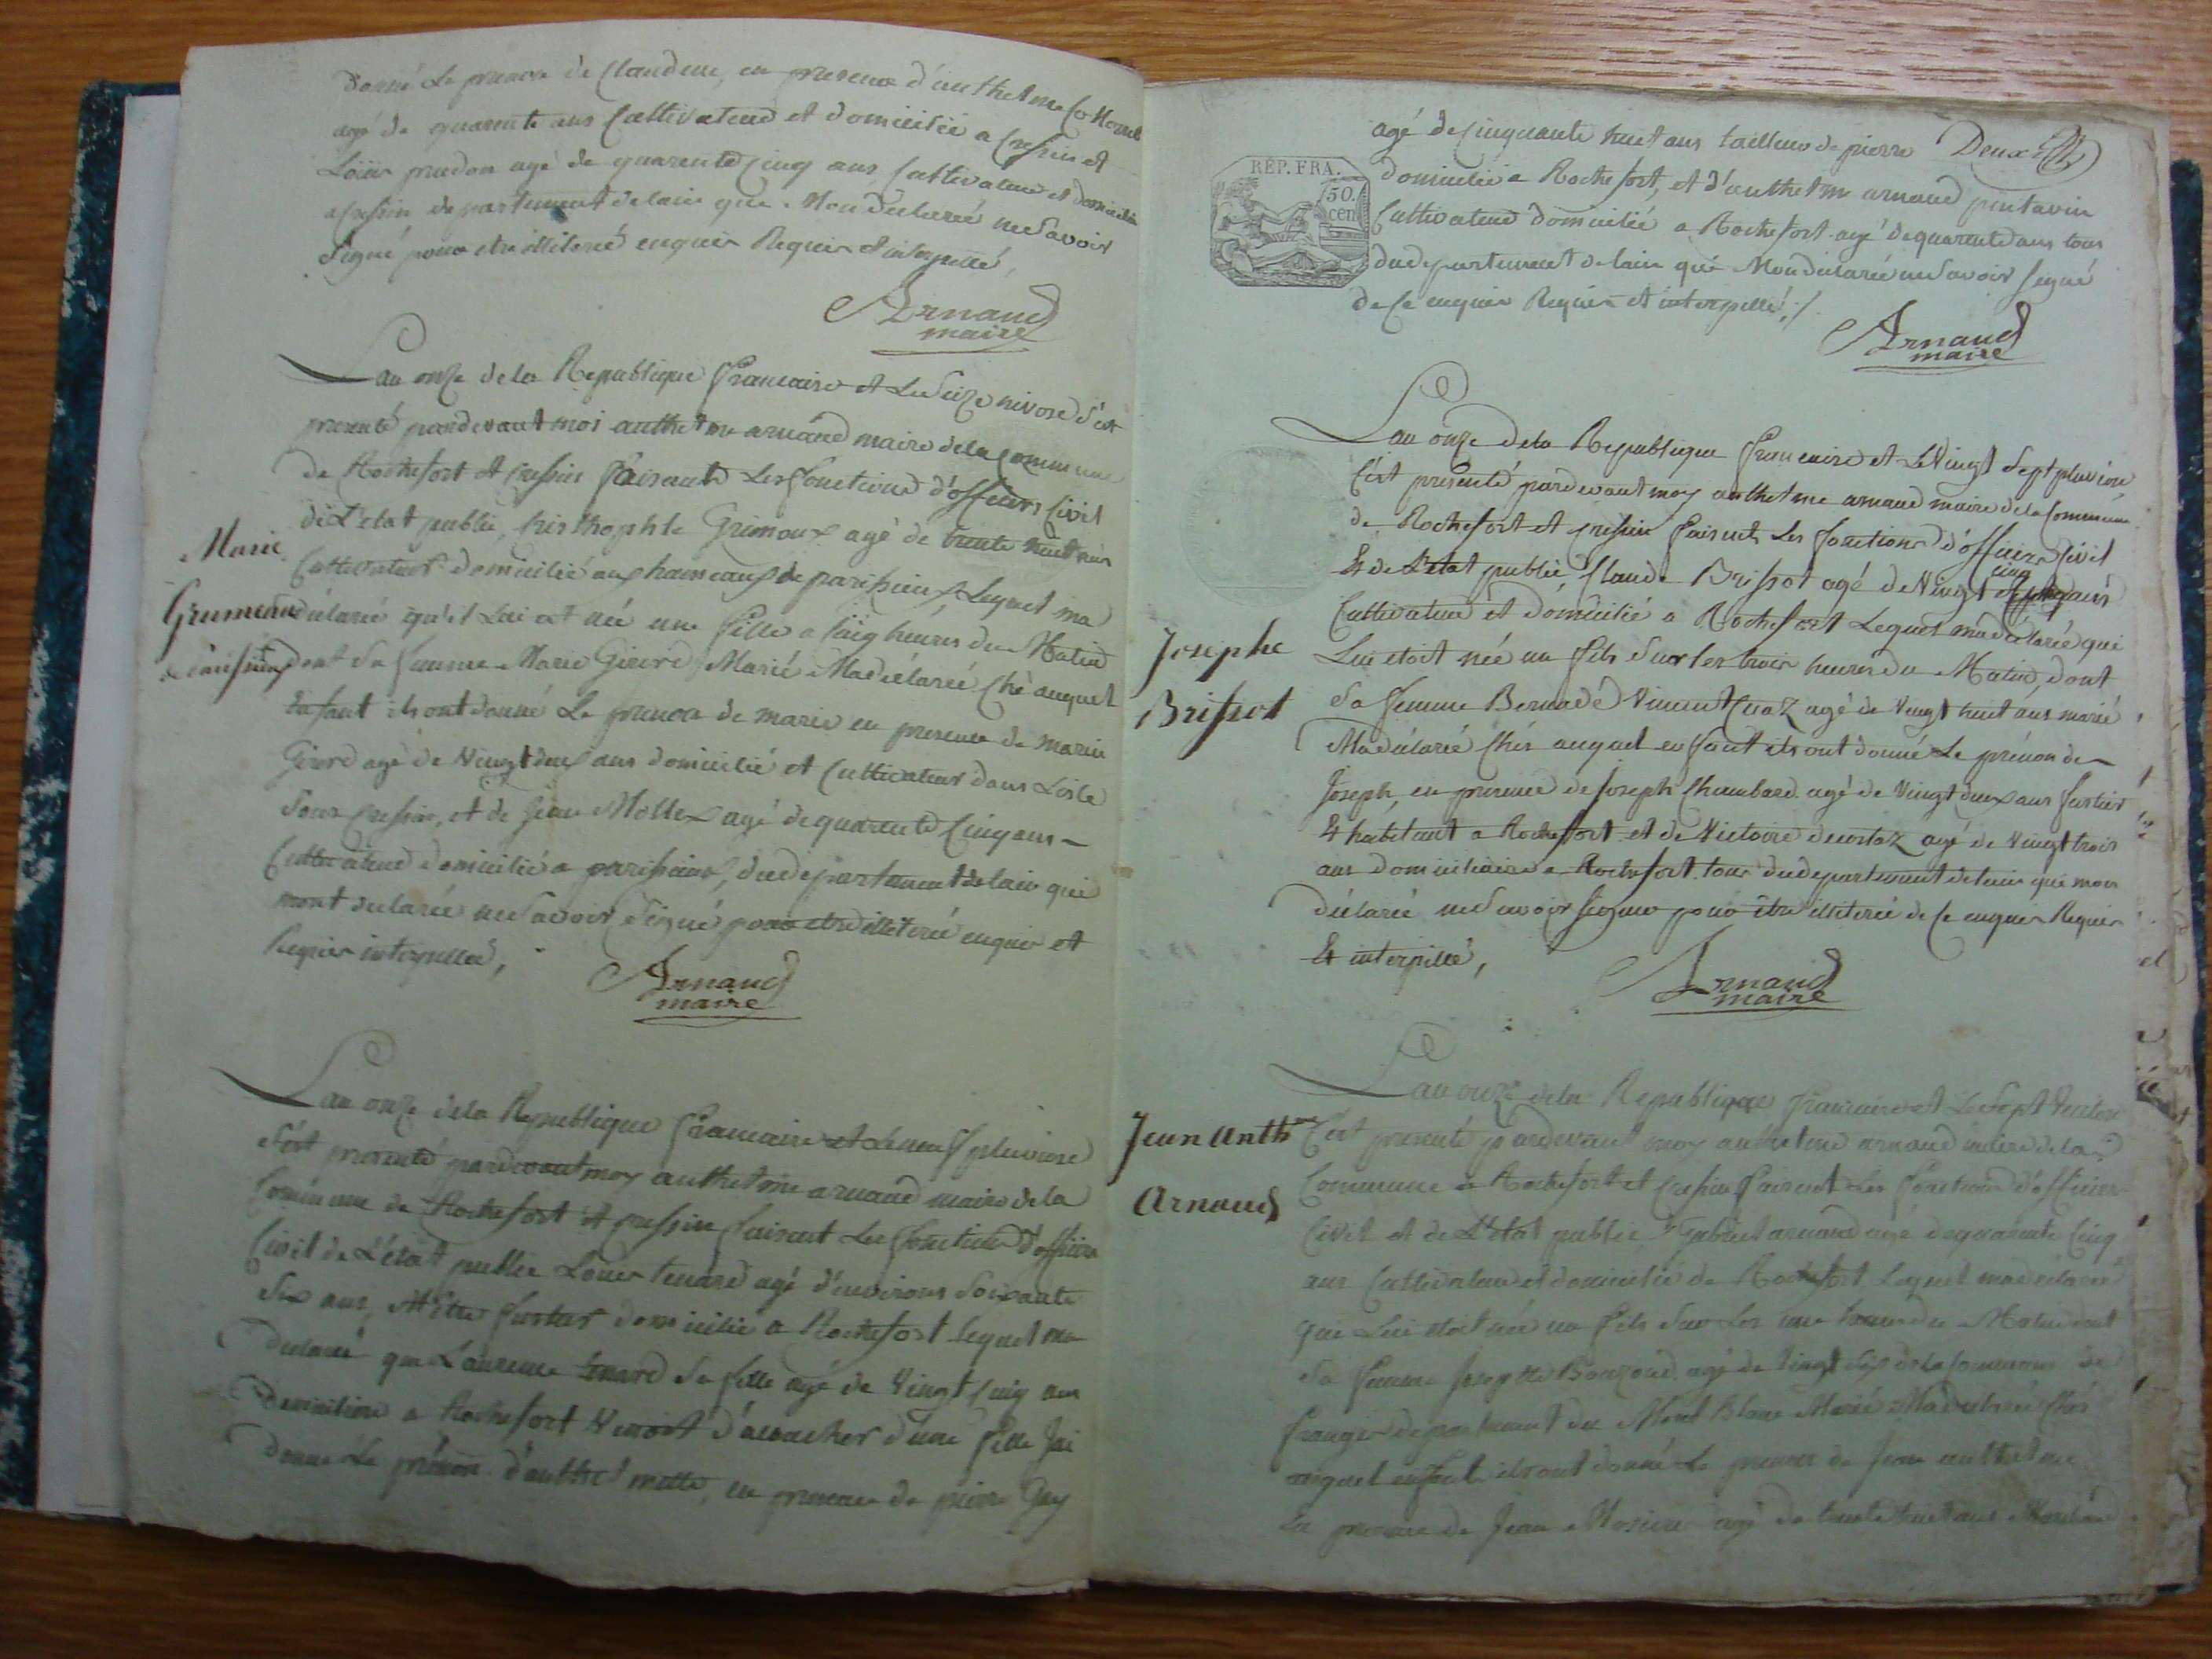 Donné Le prenom de Claudine, en presence d'anthelme
agé de quarente ans Cultivateur et domicilié a Cressin et
Loüis prudon agé de quarente cinq ans Cultivateur et domicilié
a Cressin departement delain qui. Mon declareé ne Savoir
Signé pour etre illiteré enquis Requis et interpellé,
Arnaud
maire
Lan onze dela Republique francaise et Le Seize nivose s'est
presenté pardevant moi anthelme arnaud maire dela Commune
de Rochefort et Cressin faisante Les fonctions d'officiers Civil
de L'etat public, Cristhophle Grimoux agé de trente huit ans
Marie
Cultivateur domicilié aux hameaux de parissieux Lequel ma
Grumeau
déclareé qu'il Lui est née une fille a Cinq heures du Matin
de parissieux
dont Sa femme Marie Girerd, Marié Madéclareé Ché auquel
Enfant ils ont donné Le prenom de marie en presence de marie
Girerd agé de Vingt deux ans domicilié et Cultivateur dans Lisle
Sous Cressin, et de Jean Mollex agé dequarente Cinq ans –
Cultivateur domicilié a parissieux, dudepartement delain qui
mont declareé ne Savoir Signé pour etre illiteré enquis et
Requis interpellés,
Arnaud
maire
Lan onze dela Republique francaise et Leneuf pluviose
s'est presenté pardevant moy anthelme arnaud maire dela
Commune de Rochefort et Cressin faisant Les fonctions d'officier
Civil de L'état public Loüis tenard agé d'environs Soixante
Six ans, Mètre fustier domicilié a Rochefort lequel ma
declaré que Laurence tenard Sa fille agé de Vingt Cinq ans
domicilieé a Rochefort Venoit d'acoucher d'une fille Jai
Donné Le prénom d'anthelmette, en presence de pierre Guy
agé de Cinquante huit ans tailleur de pierre Deux
REP. FRA.
50.
cen
domicilié a Rochefort, et d'anthelme arnaud pontavin
Cultivateur domicilié a Rochefort agé dequarente ans tous
du departement delain qui Mon declareé ne Savoir Signé
de Ce enquis Requis et interpellé,/.
Arnaud
maire
Lan onze dela Republique francaise et Le Vingt Sept pluviose
C'est presenté pardevant moy anthelme arnaud maire dela Commune
de Rochefort et Cressin faisant Les fonctions d'officier Civil
Et de L'etat public Claude Brissot agé de Vingt cinq ans
Cultivateur et domicilié a Rochefort Lequel ma déclareé qui
Josephe
Lui etoit née un fils Sur les trois heures du Matin, dont
Brissot
Sa femme Bernade Vincent Cuaz agé de Vingt huit ans marié
Ma déclareé Chés auquel enfant ils ont donné Le prénom de –
Joseph, en presence de Joseph Chambard agé de Vingt deux ans fustier
Et habitant a Rochefort et de Victoire ducrtaz agé de Vingt trois
ans domiciliaire a Rochefort. tous dudepartement delain qui mon
déclareé ne Savoir Signer pour être illiteré de Ce enquis Requis
Et interpellé,
Arnaud
maire
Lan onze dela Republique francaise et Le Sept Ventose
Jean Anthme
C'est presenté pardevant moy anthelme arnaud maire dela
Arnaud
Commune de Rochefort et Cressin faisant Les fonctions d'officier
Civil et de L'état public, Gabriel arnaud agé dequarante Cinq
ans Cultivateur et domicilié de Rochefort Lequel ma déclareé
qui Lui etoit née un fils Sur Les une heures du Matin dont
Sa femme Josephte agé de Vingt Six dela Commune de
frangir departement du Mont Blanc Marié Ma declareé Chés
auquel enfant ils ont donné Le prenom de Jean anthelme
En presence de Jean agé de trente huit ans